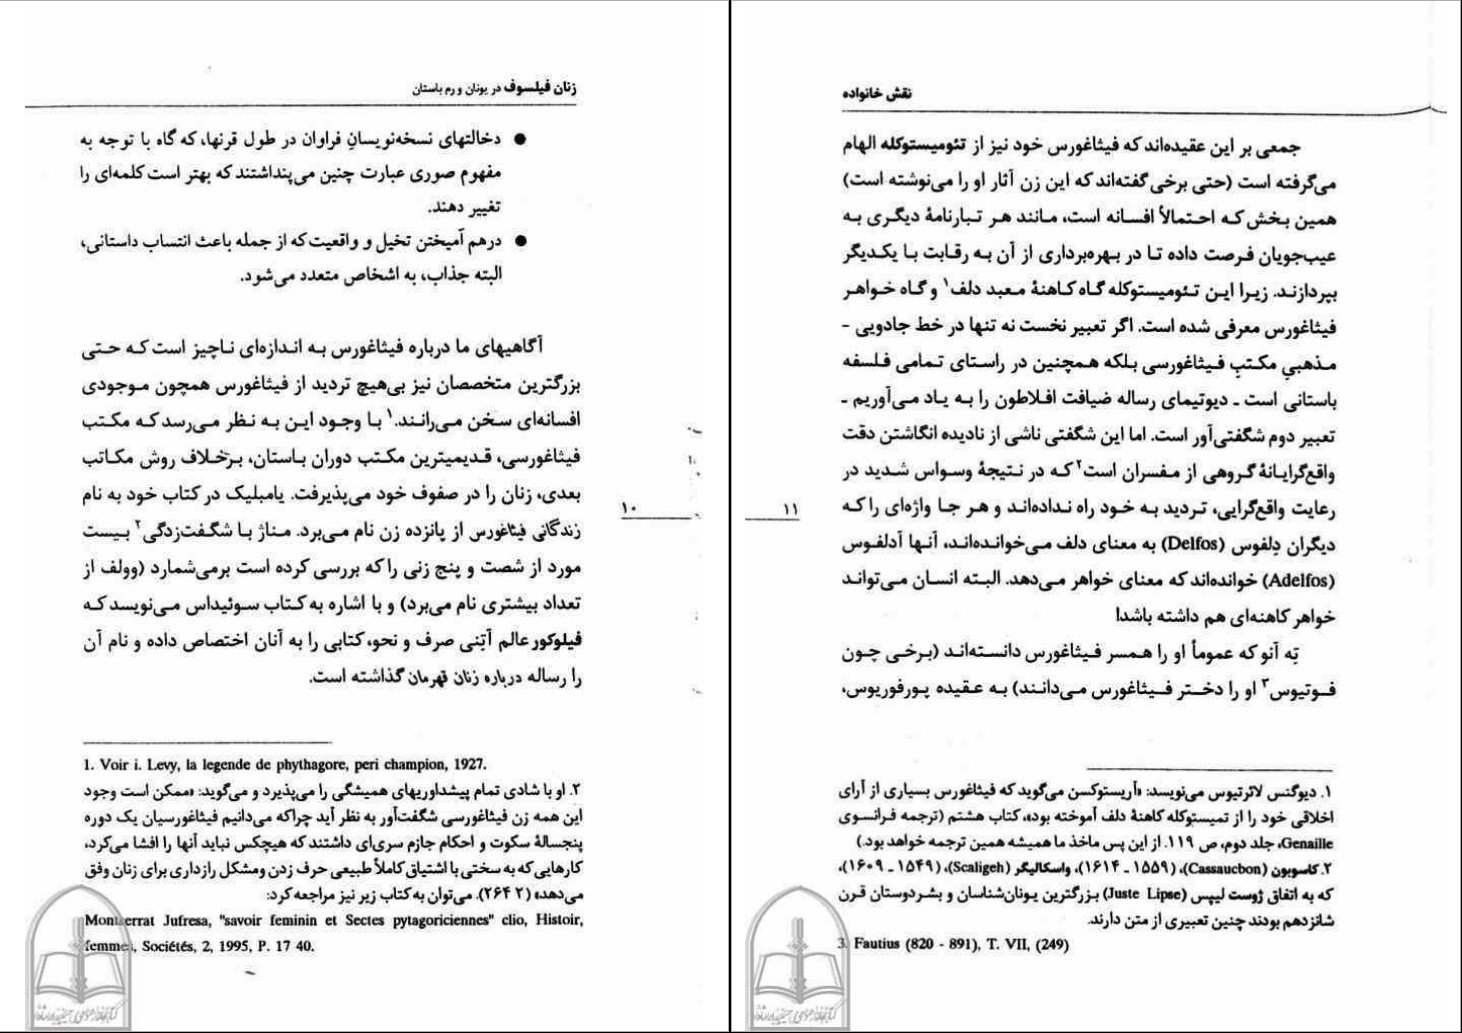 زنان فیلسوف در یونان و رم باستان
● دخالتهای نسخه‌نویسانِ فراوان در طول قرنها، که گاه با توجه به
مفهوم صوری عبارت چنین می‌پنداشتند که بهتر است کلمه‌ای را
تغییر دهند.
● درهم آمیختن تخیل و واقعیت که از جمله باعث انتساب داستانی،
البته جذاب، به اشخاص متعدد می‌شود.
آگاهیهای ما درباره فیثاغورس به اندازه‌ای ناچیز است که حتی
بزرگترین متخصصان نیز بی‌هیچ تردید از فیثاغورس همچون موجودی
افسانه‌ای سخن می‌رانند.۱ با وجود این به نظر می‌رسد که مکتب
فیثاغورسی، قدیمیترین مکتب دوران باستان، برخلاف روش مکاتب
بعدی، زنان را در صفوف خود می‌پذیرفت. یامبلیک در کتاب خود به نام
زندگانی فیثاغورس از پانزده زن نام می‌برد. مناژ با شگفت‌زدگی۲ بیست
مورد از شصت و پنج زنی را که بررسی کرده است برمی‌شمارد (وولف از
تعداد بیشتری نام می‌برد) و با اشاره به کتاب سوئیداس می‌نویسد که
فیلوکور عالم آتِنی صرف و نحو، کتابی را به آنان اختصاص داده و نام آن
را رساله درباره زنان قهرمان گذاشته است.
۱۰
1. Voir i. Levy, la legende de phythagore, peri champion, 1927.
۲. او با شادی تمام پیشداوریهای همیشگی را می‌پذیرد و می‌گوید: «ممکن است وجود
این همه زن فیثاغورسی شگفت‌آور به نظر آید چراکه می‌دانیم فیثاغورسیان یک دوره
پنجسالهٔ سکوت و احکام جازم سری‌ای داشتند که هیچکس نباید آنها را افشا می‌کرد،
کارهایی که به سختی با اشتیاق کاملاً طبیعی حرف زدن ومشکل رازداری برای زنان وفق
می‌دهد» (۲ ۲۶۴). می‌توان به کتاب زیر نیز مراجعه کرد:
Montserrat Jufresa, "savoir feminin et Sectes pytagoriciennes" clio, Histoir,
femmes, Sociétés, 2, 1995, P. 17 40.
نقش خانواده
جمعی بر این عقیده‌اند که فیثاغورس خود نیز از تئومیستوکله الهام
می‌گرفته است (حتی برخی گفته‌اند که این زن آثار او را می‌نوشته است)
همین بخش که احتمالاً افسانه است، مانند هر تبارنامهٔ دیگری به
عیب‌جویان فرصت داده تا در بهره‌برداری از آن به رقابت با یکدیگر
بپردازند. زیرا این تئومیستوکله گاه کاهنهٔ معبد دلف۱ و گاه خواهر
فیثاغورس معرفی شده است. اگر تعبیر نخست نه تنها در خط جادویی -
مذهبیِ مکتبِ فیثاغورسی بلکه همچنین در راستای تمامی فلسفه
باستانی است ـ دیوتیمای رساله ضیافت افلاطون را به یاد می‌آوریم ـ
تعبیر دوم شگفتی‌آور است. اما این شگفتی ناشی از نادیده انگاشتن دقت
واقع‌گرایانهٔ گروهی از مفسران است۲ که در نتیجهٔ وسواس شدید در
رعایت واقع‌گرایی، تردید به خود راه نداده‌اند و هر جا واژه‌ای را که
دیگران دِلفوس (Delfos) به معنای دلف می‌خوانده‌اند، آنها آدلفوس
(Adelfos) خوانده‌اند که معنای خواهر می‌دهد. البته انسان می‌تواند
خواهر کاهنه‌ای هم داشته باشد!
تِه آنو که عموماً او را همسر فیثاغورس دانسته‌اند (برخی چون
فوتیوس۳ او را دختر فیثاغورس می‌دانند) به عقیده پورفوریوس،
۱۱
۱. دیوگنس لائرتیوس می‌نویسد: «آریستوکسن می‌گوید که فیثاغورس بسیاری از آرای
اخلاقی خود را از تمیستوکله کاهنهٔ دلف آموخته بود»، کتاب هشتم (ترجمه فرانسوی
Genaille، جلد دوم، ص ۱۱۹. از این پس ماخذ ما همیشه همین ترجمه خواهد بود.)
۲. کاسوبون (Cassaucbon)، (۱۵۵۹ ـ ۱۶۱۴)، واسکالیگر (Scaligeh)، (۱۵۴۹ ـ ۱۶۰۹)،
که به اتفاق ژوست لیپس (Juste Lipse) بزرگترین یونان‌شناسان و بشردوستان قرن
شانزدهم بودند چنین تعبیری از متن دارند.
3. Fautius (820 - 891), T. VII, (249)